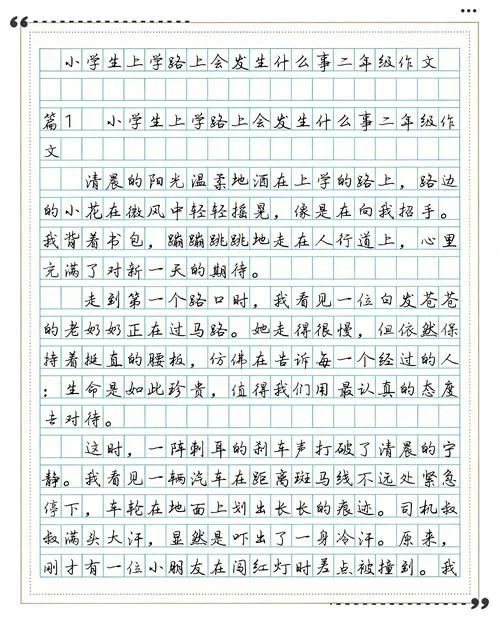 小学生上学路上会发生什么事二年级作文
篇1 小学生上学路上会发生什么事二年级作
文
清晨的阳光温柔地洒在上学的路上，路边
的小花在微风中轻轻摇晃，像是在向我招手。
我背着书包，蹦蹦跳跳地走在人行道上，心里
充满了对新一天的期待。
走到第一个路口时，我看见一位白发苍苍
的老奶奶正在过马路。她走得很慢，但依然保
持着挺直的腰板，仿佛在告诉每一个经过的人
：生命是如此珍贵，值得我们用最认真的态度
去对待。
这时，一阵刺耳的刹车声打破了清晨的宁
静。我看见一辆汽车在距离斑马线不远处紧急
停下，车轮在地面上划出长长的痕迹。司机叔
叔满头大汗，显然是吓出了一身冷汗。原来，
刚才有一位小朋友在闯红灯时差点被撞到。我